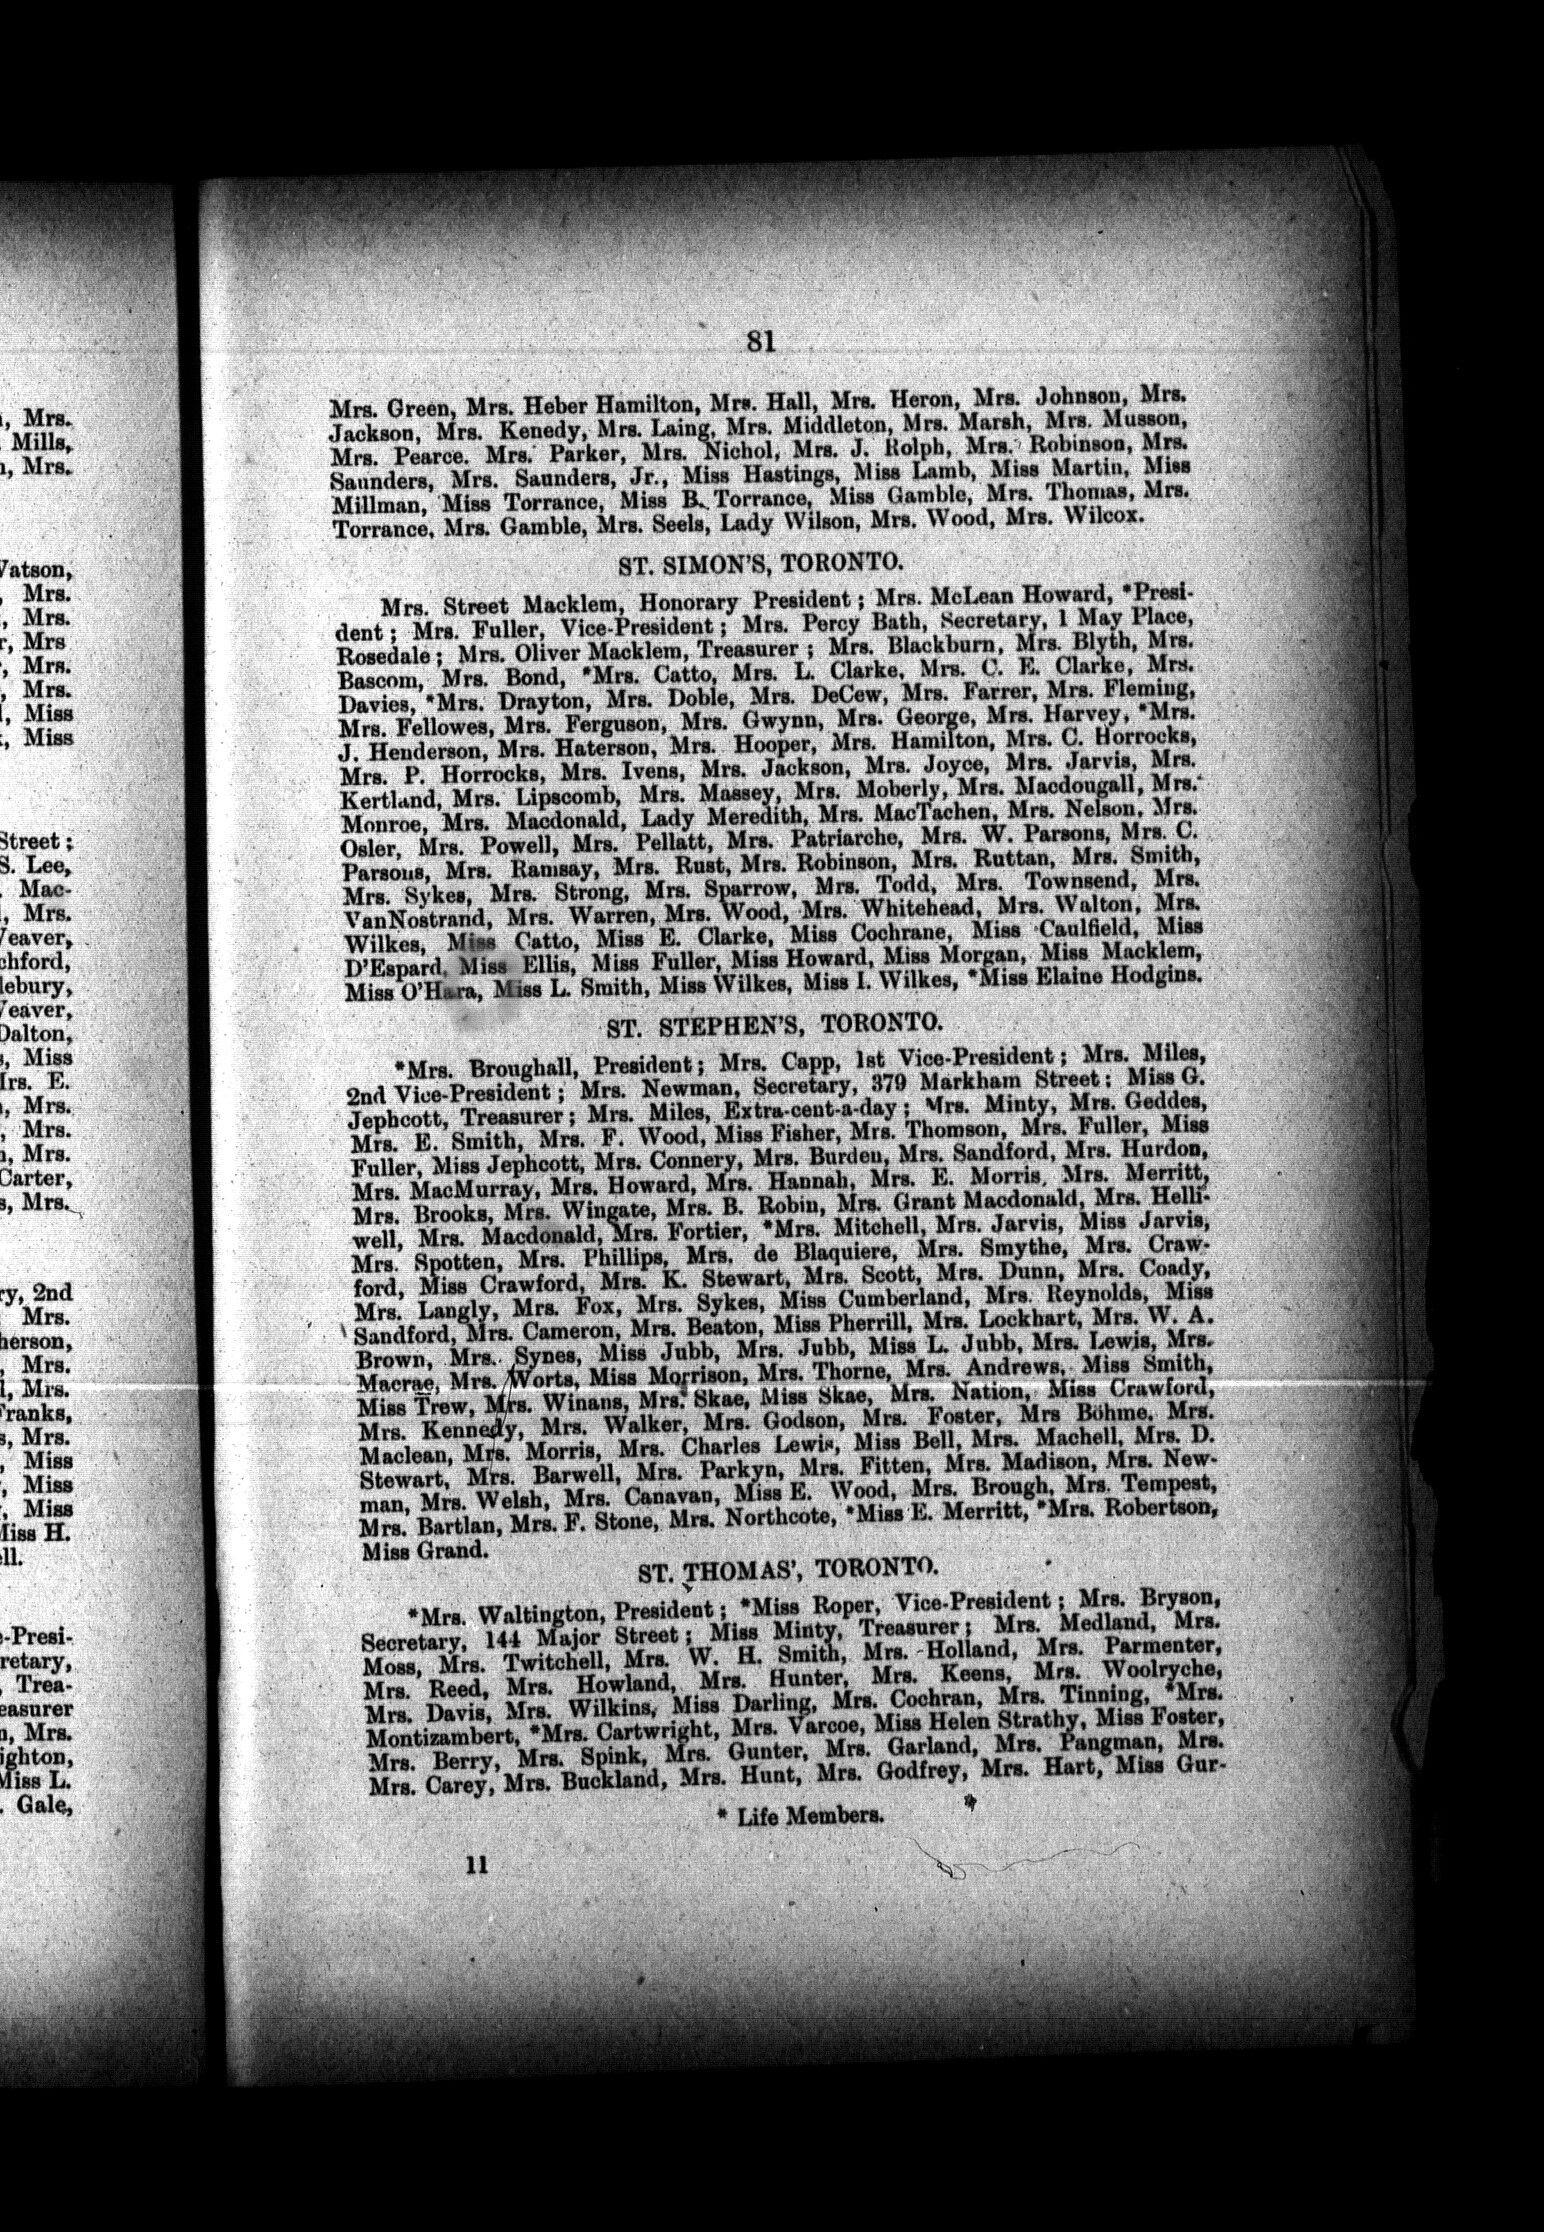 , Mrs.
Mills,
, Mrs.
Watson,
, Mrs.
, Mrs.
r, Mrs
, Mrs.
, Mrs.
, Miss
, Miss
Street ;
S. Lee,
. Mac-
, Mrs.
Weaver,
chford,
lebury,
Weaver,
Dalton,
, Miss
Mrs. E.
, Mrs.
, Mrs.
, Mrs.
Carter,
s, Mrs.
ry, 2nd
Mrs.
herson,
, Mrs.
, Mrs.
Franks,
s, Mrs.
, Miss
, Miss
, Miss
Miss H.
ell.
e-Presi-
retary,
, Trea-
easurer
n, Mrs.
ighton,
Miss L.
. Gale,
81
Mrs. Green, Mrs. Heber Hamilton, Mrs. Hall, Mrs. Heron, Mrs. Johnson, Mrs.
Jackson, Mrs. Kenedy, Mrs. Laing, Mrs. Middleton, Mrs. Marsh, Mrs. Musson,
Mrs. Pearce. Mrs. Parker, Mrs. Nichol, Mrs. J. Rolph, Mrs. Robinson, Mrs.
Saunders, Mrs. Saunders, Jr., Miss Hastings, Miss Lamb, Miss Martin, Miss
Millman, Miss Torrance, Miss B. Torrance, Miss Gamble, Mrs. Thomas, Mrs.
Torrance, Mrs. Gamble, Mrs. Seels, Lady Wilson, Mrs. Wood, Mrs. Wilcox.
ST. SIMON'S, TORONTO.
Mrs. Street Macklem, Honorary President ; Mrs. McLean Howard, *Presi-
dent ; Mrs. Fuller, Vice-President ; Mrs. Percy Bath, Secretary, 1 May Place,
Rosedale ; Mrs. Oliver Macklem, Treasurer ; Mrs. Blackburn, Mrs. Blyth, Mrs.
Bascom, Mrs. Bond, *Mrs. Catto, Mrs. L. Clarke, Mrs. C. E. Clarke, Mrs.
Davies, *Mrs. Drayton, Mrs. Doble, Mrs. DeCew, Mrs. Farrer, Mrs. Fleming,
Mrs. Fellowes, Mrs. Ferguson, Mrs. Gwynn, Mrs. George, Mrs. Harvey, *Mrs.
J. Henderson, Mrs. Haterson, Mrs. Hooper, Mrs. Hamilton, Mrs. C. Horrocks,
Mrs. P. Horrocks, Mrs. Ivens, Mrs. Jackson, Mrs. Joyce, Mrs. Jarvis, Mrs.
Kertland, Mrs. Lipscomb, Mrs. Massey, Mrs. Moberly, Mrs. Macdougall, Mrs.
Monroe, Mrs. Macdonald, Lady Meredith, Mrs. MacTachen, Mrs. Nelson, Mrs.
Osler, Mrs. Powell, Mrs. Pellatt, Mrs. Patriarche, Mrs. W. Parsons, Mrs. C.
Parsons, Mrs. Ramsay, Mrs. Rust, Mrs. Robinson, Mrs. Ruttan, Mrs. Smith,
Mrs. Sykes, Mrs. Strong, Mrs. Sparrow, Mrs. Todd, Mrs. Townsend, Mrs.
VanNostrand, Mrs. Warren, Mrs. Wood, Mrs. Whitehead, Mrs. Walton, Mrs.
Wilkes, Miss Catto, Miss E. Clarke, Miss Cochrane, Miss Caulfield, Miss
D'Espard, Miss Ellis, Miss Fuller, Miss Howard, Miss Morgan, Miss Macklem,
Miss O'Hara, Miss L. Smith, Miss Wilkes, Miss I. Wilkes, *Miss Elaine Hodgins.
ST. STEPHEN'S, TORONTO.
*Mrs. Broughall, President ; Mrs. Capp, 1st Vice-President ; Mrs. Miles,
2nd Vice-President ; Mrs. Newman, Secretary, 379 Markham Street ; Miss G.
Jephcott, Treasurer ; Mrs. Miles, Extra-cent-a-day ; Mrs. Minty, Mrs. Geddes,
Mrs. E. Smith, Mrs. F. Wood, Miss Fisher, Mrs. Thomson, Mrs. Fuller, Miss
Fuller, Miss Jephcott, Mrs. Connery, Mrs. Burden, Mrs. Sandford, Mrs. Hurdon,
Mrs. MacMurray, Mrs. Howard, Mrs. Hannah, Mrs. E. Morris, Mrs. Merritt,
Mrs. Brooks, Mrs. Wingate, Mrs. B. Robin, Mrs. Grant Macdonald, Mrs. Helli-
well, Mrs. Macdonald, Mrs. Fortier, *Mrs. Mitchell, Mrs. Jarvis, Miss Jarvis,
Mrs. Spotten, Mrs. Phillips, Mrs. de Blaquiere, Mrs. Smythe, Mrs. Craw-
ford, Miss Crawford, Mrs. K. Stewart, Mrs. Scott, Mrs. Dunn, Mrs. Coady,
Mrs. Langly, Mrs. Fox, Mrs. Sykes, Miss Cumberland, Mrs. Reynolds, Miss
Sandford, Mrs. Cameron, Mrs. Beaton, Miss Pherrill, Mrs. Lockhart, Mrs. W. A.
Brown, Mrs. Synes, Miss Jubb, Mrs. Jubb, Miss L. Jubb, Mrs. Lewis, Mrs.
Macrae, Mrs. Worts, Miss Morrison, Mrs. Thorne, Mrs. Andrews, Miss Smith,
Miss Trew, Mrs. Winans, Mrs. Skae, Miss Skae, Mrs. Nation, Miss Crawford,
Mrs. Kennedy, Mrs. Walker, Mrs. Godson, Mrs. Foster, Mrs Böhme, Mrs.
Maclean, Mrs. Morris, Mrs. Charles Lewis, Miss Bell, Mrs. Machell, Mrs. D.
Stewart, Mrs. Barwell, Mrs. Parkyn, Mrs. Fitten, Mrs. Madison, Mrs. New-
man, Mrs. Welsh, Mrs. Canavan, Miss E. Wood, Mrs. Brough, Mrs. Tempest,
Mrs. Bartlan, Mrs. F. Stone, Mrs. Northcote, *Miss E. Merritt, *Mrs. Robertson,
Miss Grand.
ST. THOMAS', TORONTO.
*Mrs. Waltington, President ; *Miss Roper, Vice-President ; Mrs. Bryson,
Secretary, 144 Major Street ; Miss Minty, Treasurer ; Mrs. Medland, Mrs.
Moss, Mrs. Twitchell, Mrs. W. H. Smith, Mrs. Holland, Mrs. Parmenter,
Mrs. Reed, Mrs. Howland, Mrs. Hunter, Mrs. Keens, Mrs. Woolryche,
Mrs. Davis, Mrs. Wilkins, Miss Darling, Mrs. Cochran, Mrs. Tinning, *Mrs.
Montizambert, *Mrs. Cartwright, Mrs. Varcoe, Miss Helen Strathy, Miss Foster,
Mrs. Berry, Mrs. Spink, Mrs. Gunter, Mrs. Garland, Mrs. Pangman, Mrs.
Mrs. Carey, Mrs. Buckland, Mrs. Hunt, Mrs. Godfrey, Mrs. Hart, Miss Gur-
* Life Members.
11